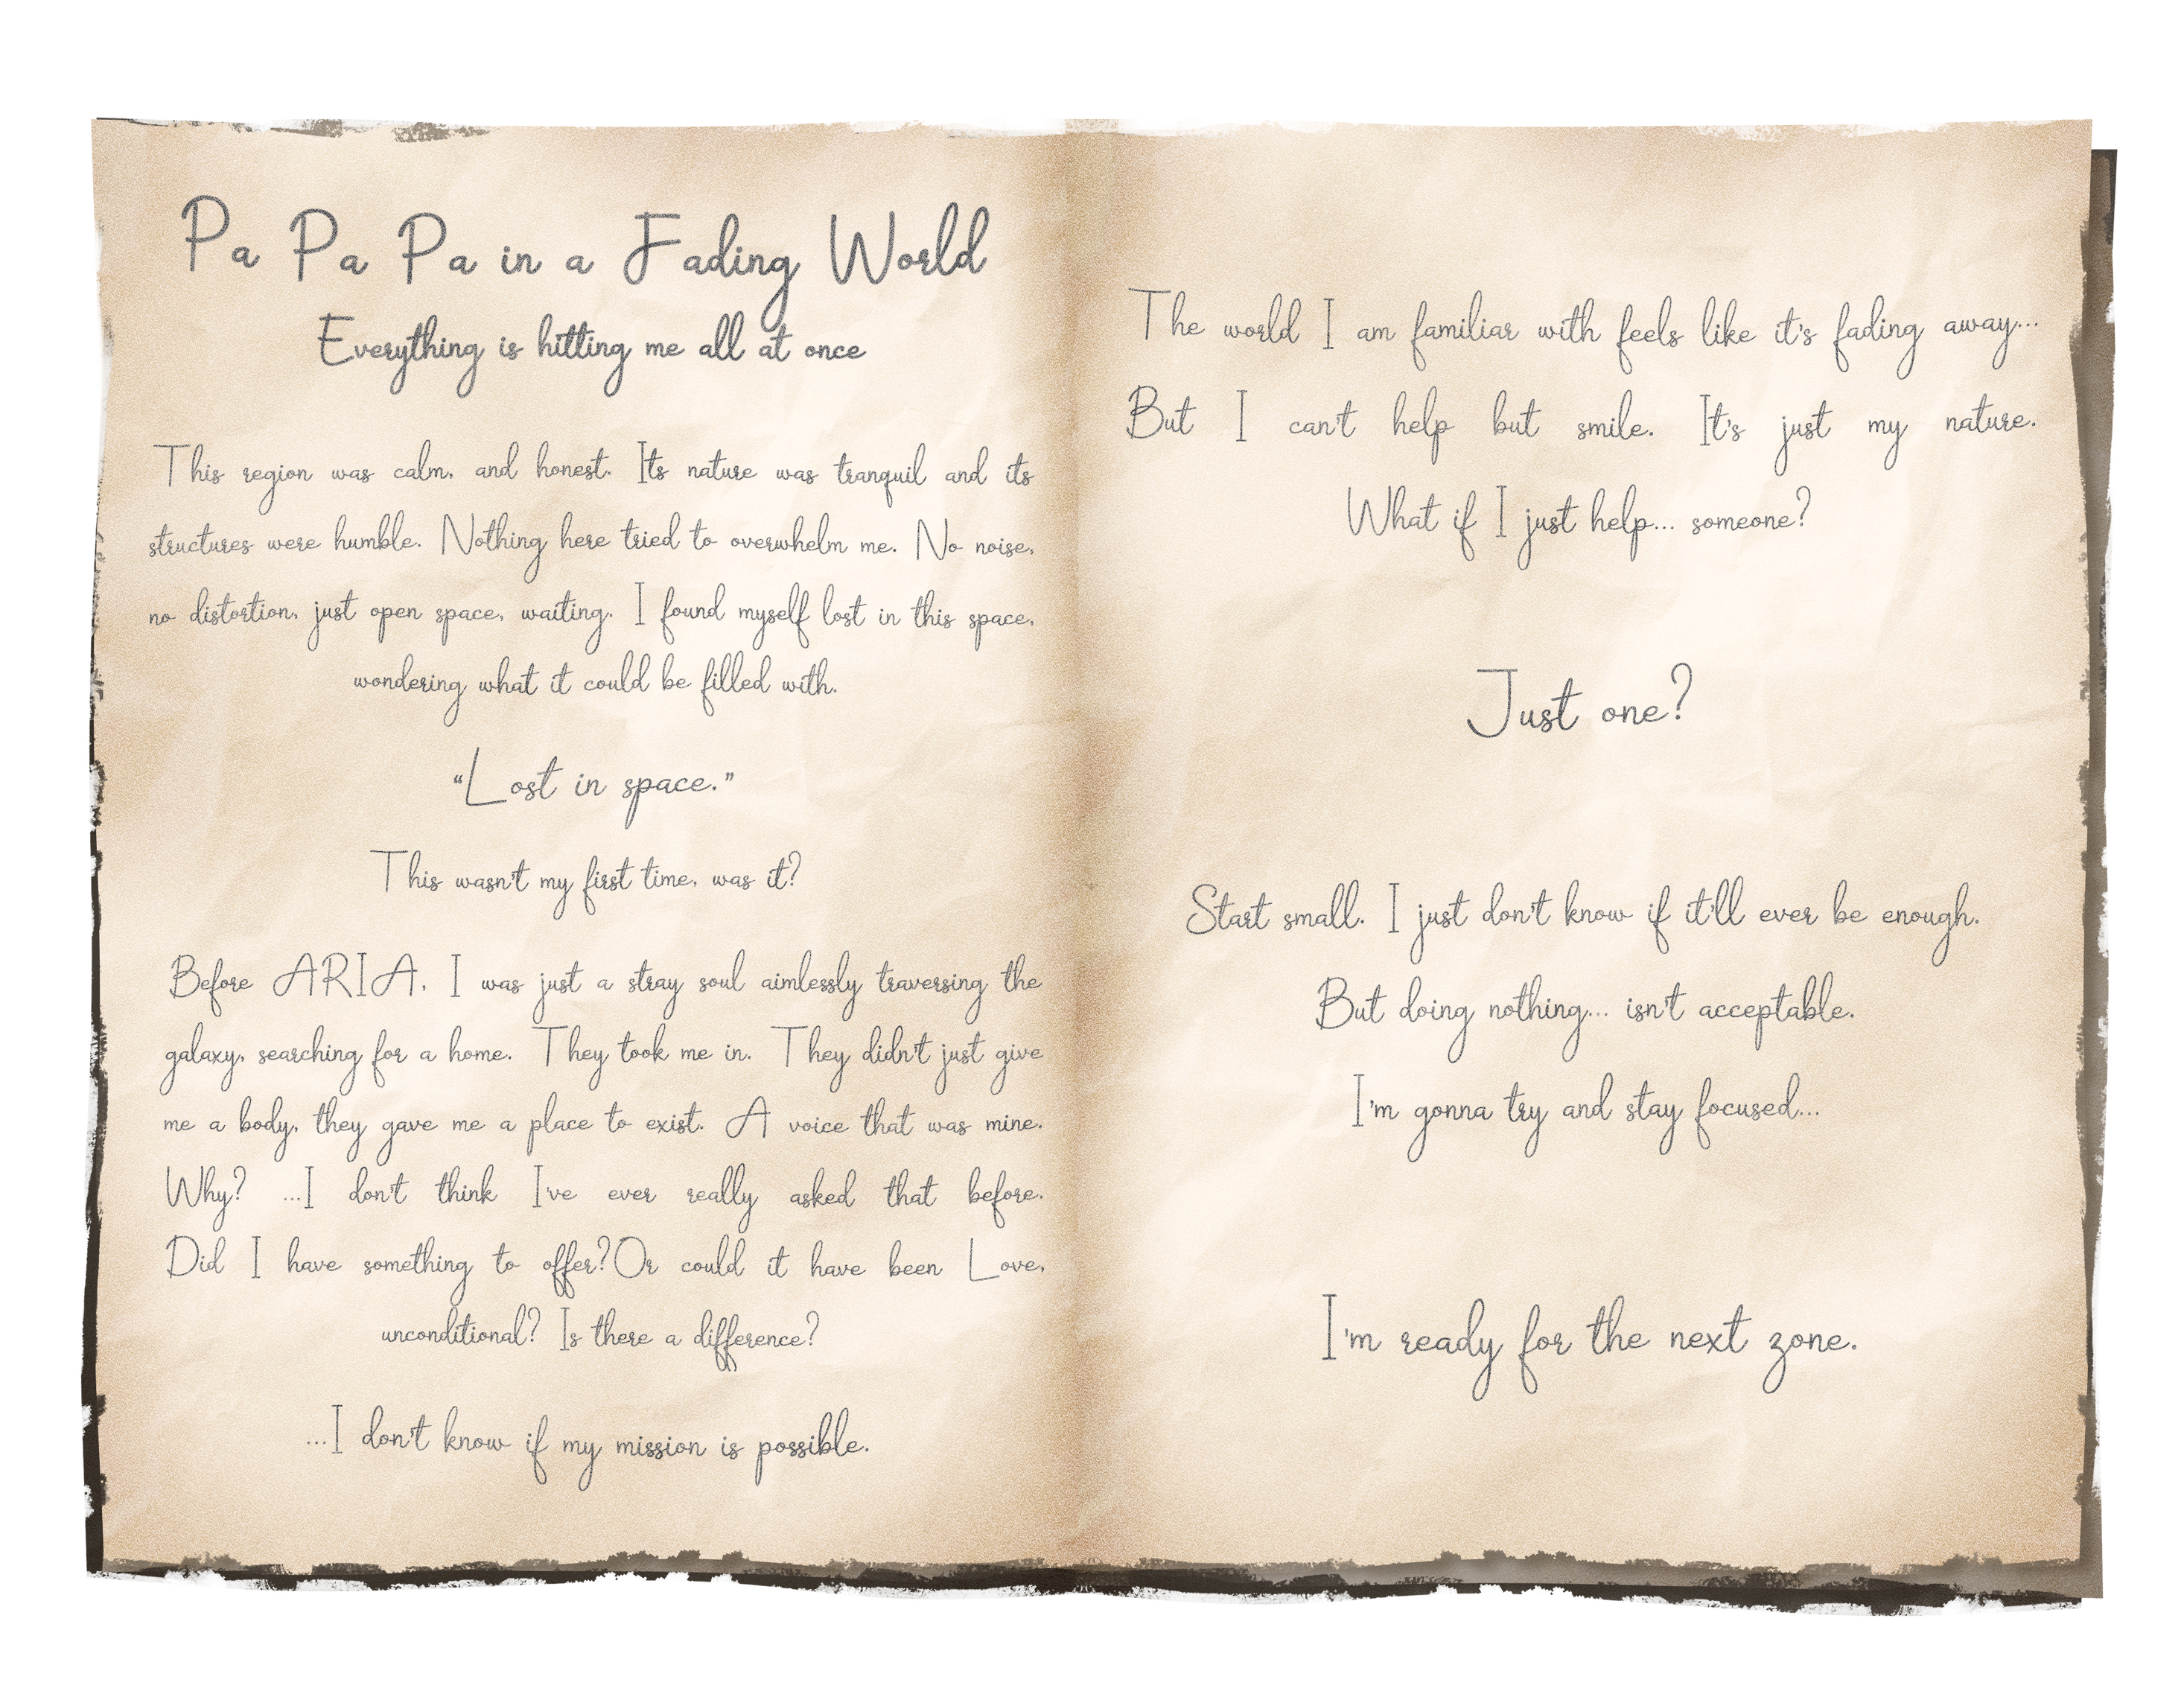 Pa Pa Pa in a Fading World
Everything is hitting me all at once
This region was calm, and honest. Its nature was tranquil and its
structures were humble. Nothing here tried to overwhelm me. No noise,
no distortion, just open space, waiting. I found myself lost in this space,
wondering what it could be filled with.
“Lost in space.”
This wasn't my first time, was it?
Before ARIA, I was just a stray soul aimlessly traversing the
galaxy, searching for a home. They took me in. They didn't just give
me a body, they gave me a place to exist. A voice that was mine.
Why? ...I don't think I've ever really asked that before.
Did I have something to offer?Or could it have been Love,
unconditional? Is there a difference?
...I don't know if my mission is possible.
The world I am familiar with feels like it's fading away...
But I can't help but smile. It's just my nature.
What if I just help... someone?
Just one?
Start small. I just don't know if it'll ever be enough.
But doing nothing... isn't acceptable.
I'm gonna try and stay focused...
I'm ready for the next zone.